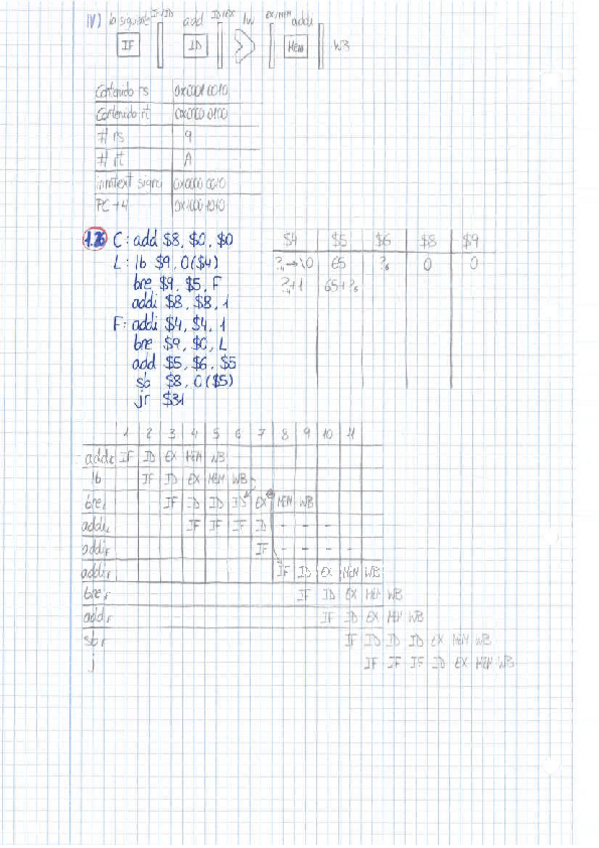 IV) la siguiente IF/ID add ID/EX lw EX/MEM addi
IF ID MEM WB
Contenido rs 0x0001 0010
Contenido rt 0x0000 0100
# rs 9
# rt A
PC+4
1.26 C: add $8, $0, $0
L: lb $9, 0($4)
bne $9, $5, F
addi $8, $8, 1
F: addi $4, $4, 1
bne $9, $0, L
add $5, $6, $5
sb $8, 0($5)
jr $31
$4 $5 $6 $8 $9
?₄→10 65 ?₆ 0 0
?₄+1 65+?₆
1 2 3 4 5 6 7 8 9 10 11
addc IF ID EX MEM WB
lb IF ID EX MEM WB
bne IF ID ID ID EX MEM WB
addi IF IF IF ID - - -
addi IF - - -
addi IF ID EX MEM WB
bne IF ID EX MEM WB
add IF ID EX MEM WB
sb IF ID ID ID EX MEM WB
j IF IF IF ID EX MEM WB